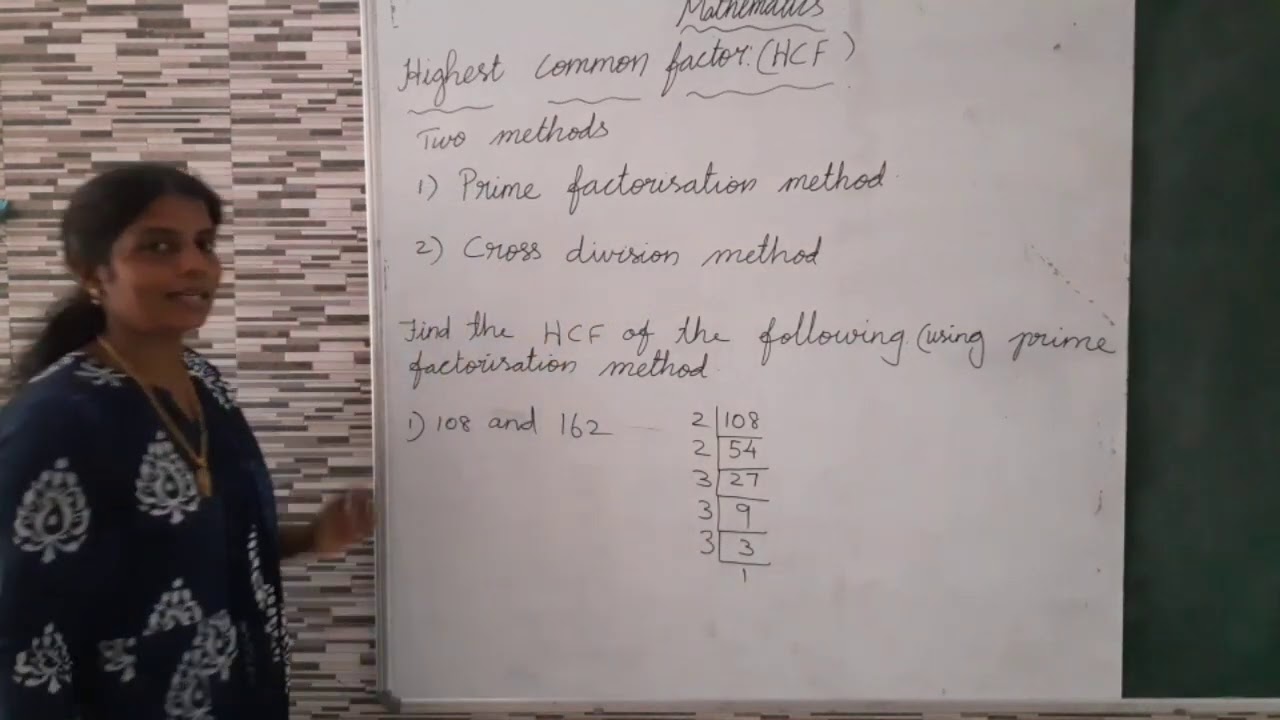 Mathematics
Highest common factor: (HCF)
Two methods
1) Prime factorisation method
2) Cross division method
Find the HCF of the following (using prime
factorisation method
1) 108 and 162
2 | 108
2 | 54
3 | 27
3 | 9
3 | 3
1